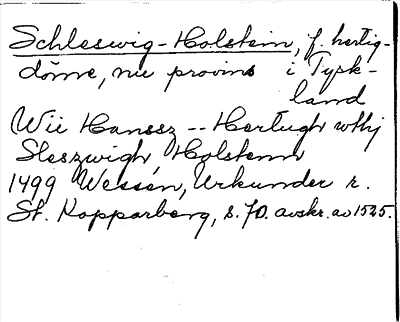 Schleswig-Holstein, f. hertig-
döme, nu provins i Tysk-
land
Wii Hanssz -- Hertugh wthj
Sleszwigh, Holstenn
1499 Wessén, Urkunder r.
St. Kopparberg, s. 70. avskr. av 1525.